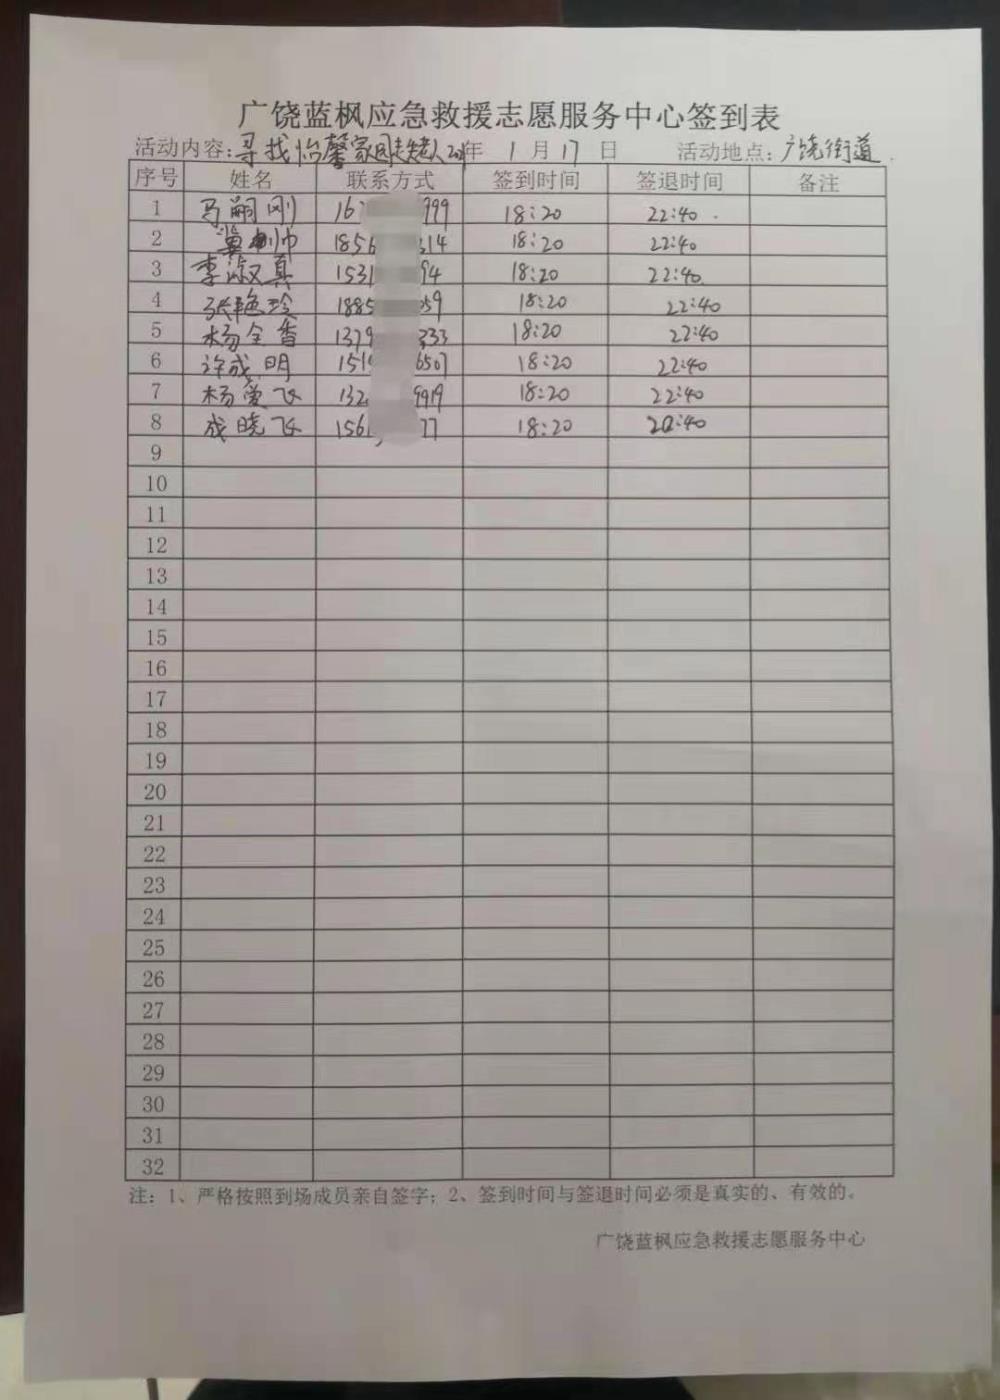 广饶蓝枫应急救援志愿服务中心签到表
活动内容:寻找怡馨家园走失老人 年 1 月 17 日 活动地点:广饶街道
序号 姓名 联系方式 签到时间 签退时间 备注
1 马嗣刚 167 999 18:20 22:40
2 冀帅 1856 314 18:20 22:40
3 李淑真 1531 94 18:20 22:40
4 张艳玲 1885 059 18:20 22:40
5 杨全香 1379 333 18:20 22:40
6 许成明 151 6507 18:20 22:40
7 杨爱飞 132 9919 18:20 22:40
8 成晓飞 156 77 18:20 22:40
9
10
11
12
13
14
15
16
17
18
19
20
21
22
23
24
25
26
27
28
29
30
31
32
注:1、严格按照到场成员亲自签字;2、签到时间与签退时间必须是真实的、有效的。
广饶蓝枫应急救援志愿服务中心